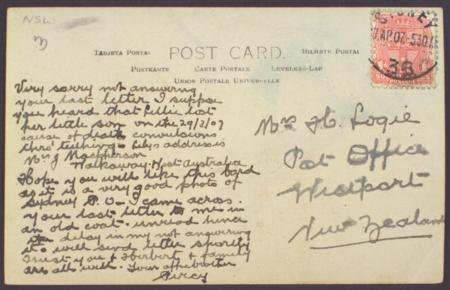 NSW
SYDNEY
AP.07 5 30
38
TARJETA POSTAL POST CARD. BILHETE POSTAL
POSTKARTE CARTE POSTALE LEVELEZŐ-LAP
UNION POSTALE UNIVERSELLE
Very sorry not answering
your last letter I suppose
you heard that Lillie lost
her little son on the 29/3/07
cause of death convulsions
thro' teething - Lily's address is
Mrs J Macpherson
West Australia
Hope you will like this card
as it is a very good photo of
Sydney P.O - I came across
your last letter to me in
an old coat - unread hence
delay in my not answering
it - will send letter shortly
Trust you & Herbert & family
are all well. Your aff brother
Percy
Mrs H. Logie
Post Office
Westport
New Zealand